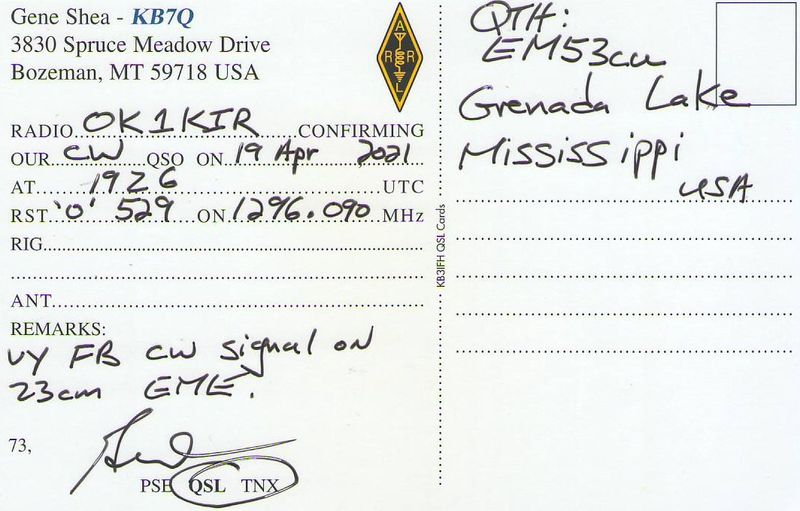 Gene Shea - KB7Q
3830 Spruce Meadow Drive
Bozeman, MT 59718 USA
A
R R
L
RADIO OK1KIR CONFIRMING
OUR CW QSO ON 19 Apr 2021
AT 1926 UTC
RST 'O' 529 ON 1296.090 MHz
RIG
ANT
REMARKS:
VY FB CW signal on
23cm EME.
73,
PSE QSL TNX
KB3IFH QSL Cards
QTH:
EM53cu
Grenada Lake
Mississippi
USA